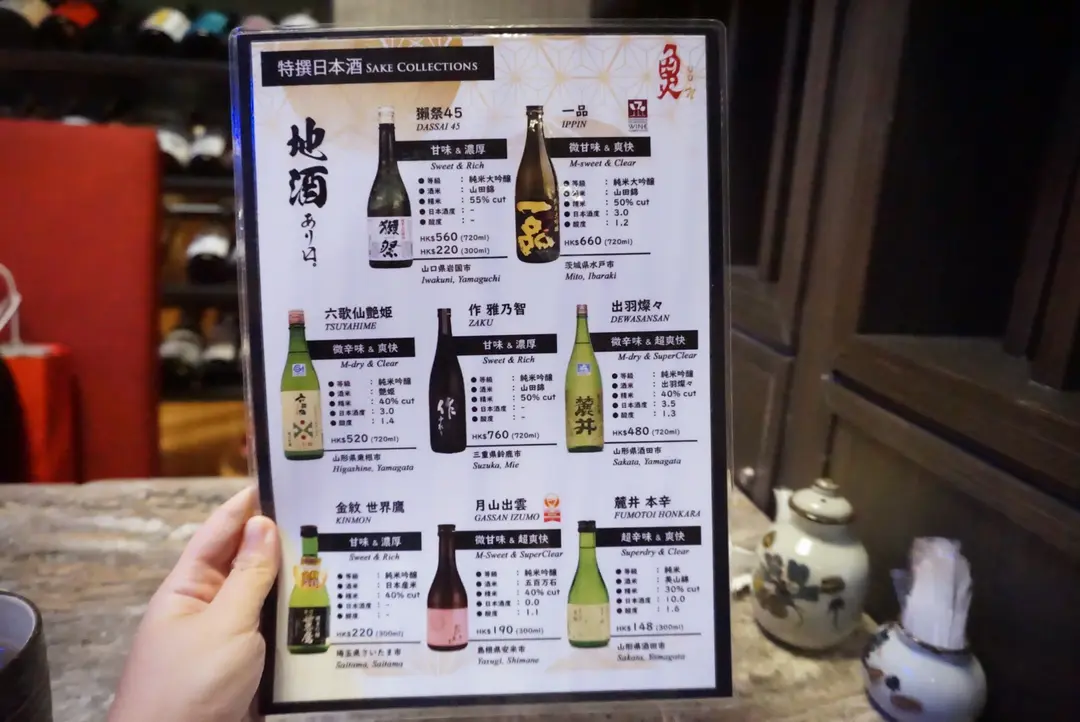 特撰日本酒 SAKE COLLECTIONS
地酒
あり〼。
獺祭45
DASSAI 45
甘味 & 濃厚
Sweet & Rich
● 等級 : 純米大吟醸
● 酒米 : 山田錦
● 精米 : 55% cut
● 日本酒度 : -
● 酸度 : -
HK$560 (720ml)
HK$220 (300ml)
山口県岩国市
Iwakuni, Yamaguchi
獺祭
一品
IPPIN
WINE
微甘味 & 爽快
M-sweet & Clear
● 等級 : 純米大吟醸
● 酒米 : 山田錦
● 精米 : 50% cut
● 日本酒度 : 3.0
● 酸度 : 1.2
HK$660 (720ml)
茨城県水戸市
Mito, Ibaraki
一品
六歌仙艶姫
TSUYAHIME
微辛味 & 爽快
M-dry & Clear
● 等級 : 純米吟醸
● 酒米 : 艶姫
● 精米 : 40% cut
● 日本酒度 : 3.0
● 酸度 : 1.4
HK$520 (720ml)
山形県東根市
Higashine, Yamagata
作 雅乃智
ZAKU
甘味 & 濃厚
Sweet & Rich
● 等級 : 純米吟醸
● 酒米 : 山田錦
● 精米 : 50% cut
● 日本酒度 : -
● 酸度 : -
HK$760 (720ml)
三重県鈴鹿市
Suzuka, Mie
作
出羽燦々
DEWASANSAN
微辛味 & 超爽快
M-dry & SuperClear
● 等級 : 純米吟醸
● 酒米 : 出羽燦々
● 精米 : 40% cut
● 日本酒度 : 3.5
● 酸度 : 1.3
HK$480 (720ml)
山形県酒田市
Sakata, Yamagata
麓井
金紋 世界鷹
KINMON
甘味 & 濃厚
Sweet & Rich
● 等級 : 純米吟醸
● 酒米 : 日本産米
● 精米 : 40% cut
● 日本酒度 : -
● 酸度 : -
HK$220 (300ml)
埼玉県さいたま市
Saitama, Saitama
月山出雲
GASSAN IZUMO
微甘味 & 超爽快
M-Sweet & SuperClear
● 等級 : 純米吟醸
● 酒米 : 五百万石
● 精米 : 40% cut
● 日本酒度 : 0.0
● 酸度 : 1.1
HK$190 (300ml)
島根県安来市
Yasugi, Shimane
麓井 本辛
FUMOTOI HONKARA
超辛味 & 爽快
Superdry & Clear
● 等級 : 純米
● 酒米 : 美山錦
● 精米 : 30% cut
● 日本酒度 : 10.0
● 酸度 : 1.6
HK$148 (300ml)
山形県酒田市
Sakata, Yamagata